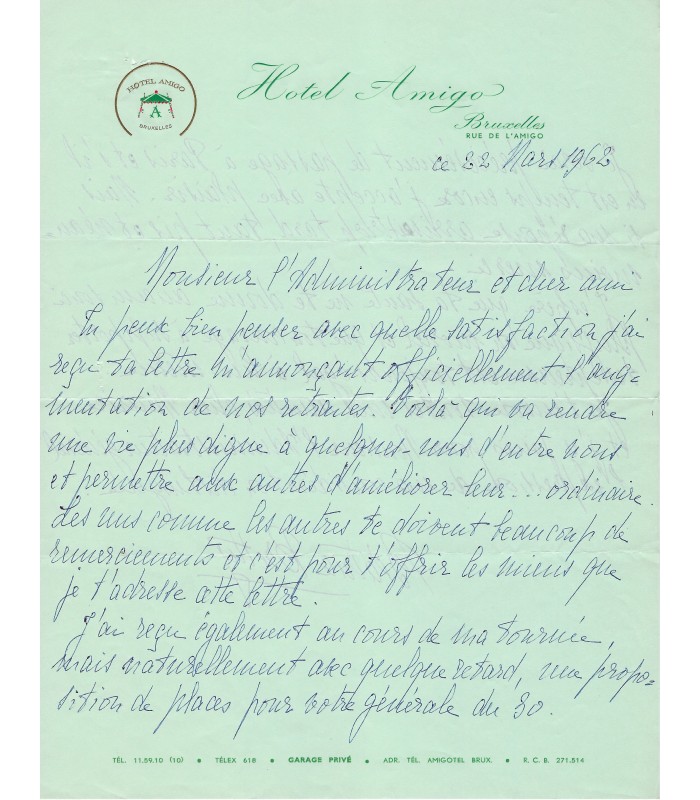 HOTEL AMIGO
A
BRUXELLES
Hotel Amigo
Bruxelles
RUE DE L'AMIGO
ce 22 Mars 1962
Monsieur l'Administrateur et cher ami
Tu peux bien penser avec quelle satisfaction j'ai
reçu ta lettre m'annonçant officiellement l'aug-
mentation de nos retraites. Voilà qui va rendre
une vie plus digne à quelques-uns d'entre nous
et permettre aux autres d'améliorer leur... ordinaire.
Les uns comme les autres te doivent beaucoup de
remerciements et c'est pour t'offrir les miens que
je t'adresse cette lettre.
J'ai reçu également au cours de ma tournée,
mais naturellement avec quelque retard, une propo-
sition de places pour votre générale du 30.
TÉL. 11.59.10 (10) • TÉLEX 618 • GARAGE PRIVÉ • ADR. TÉL. AMIGOTEL BRUX. • R. C. B. 271.514